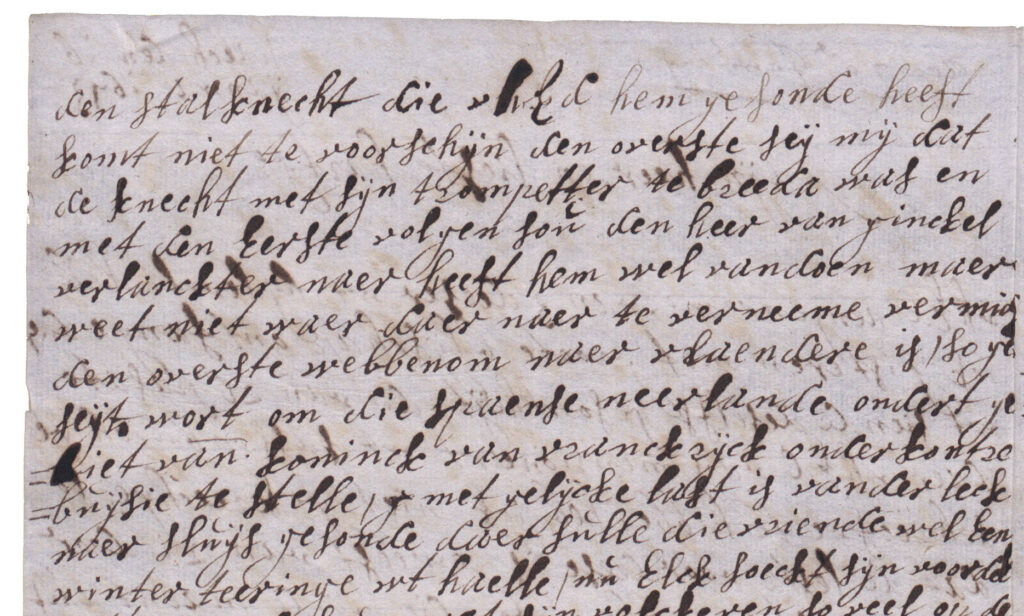 den stalknecht die uhEd hem gesonde heeft
komt niet te voorschyn den overste seÿ mÿ dat
de knecht met sÿn trompetter te breeda was en
met den Eerste volgen soŭ den heer van ginckel
verlanckter naer heeft hem wel vandoen maer
weet niet waer daer naer te verneeme vermid
den overste webbenom naer vlaendere is / so ge
seÿt wort om die spaense neerlande ondert ge
=biet van koninck van vranckryck onder kontre
=buÿsie te stelle, met gelÿcke last is vander leck
naer sluÿs gesonde daer sŭlle die vriende wel Een
winter teeringe wt haelle / nŭ Elck soeckt sÿn voordel
sÿn volckeren so veel